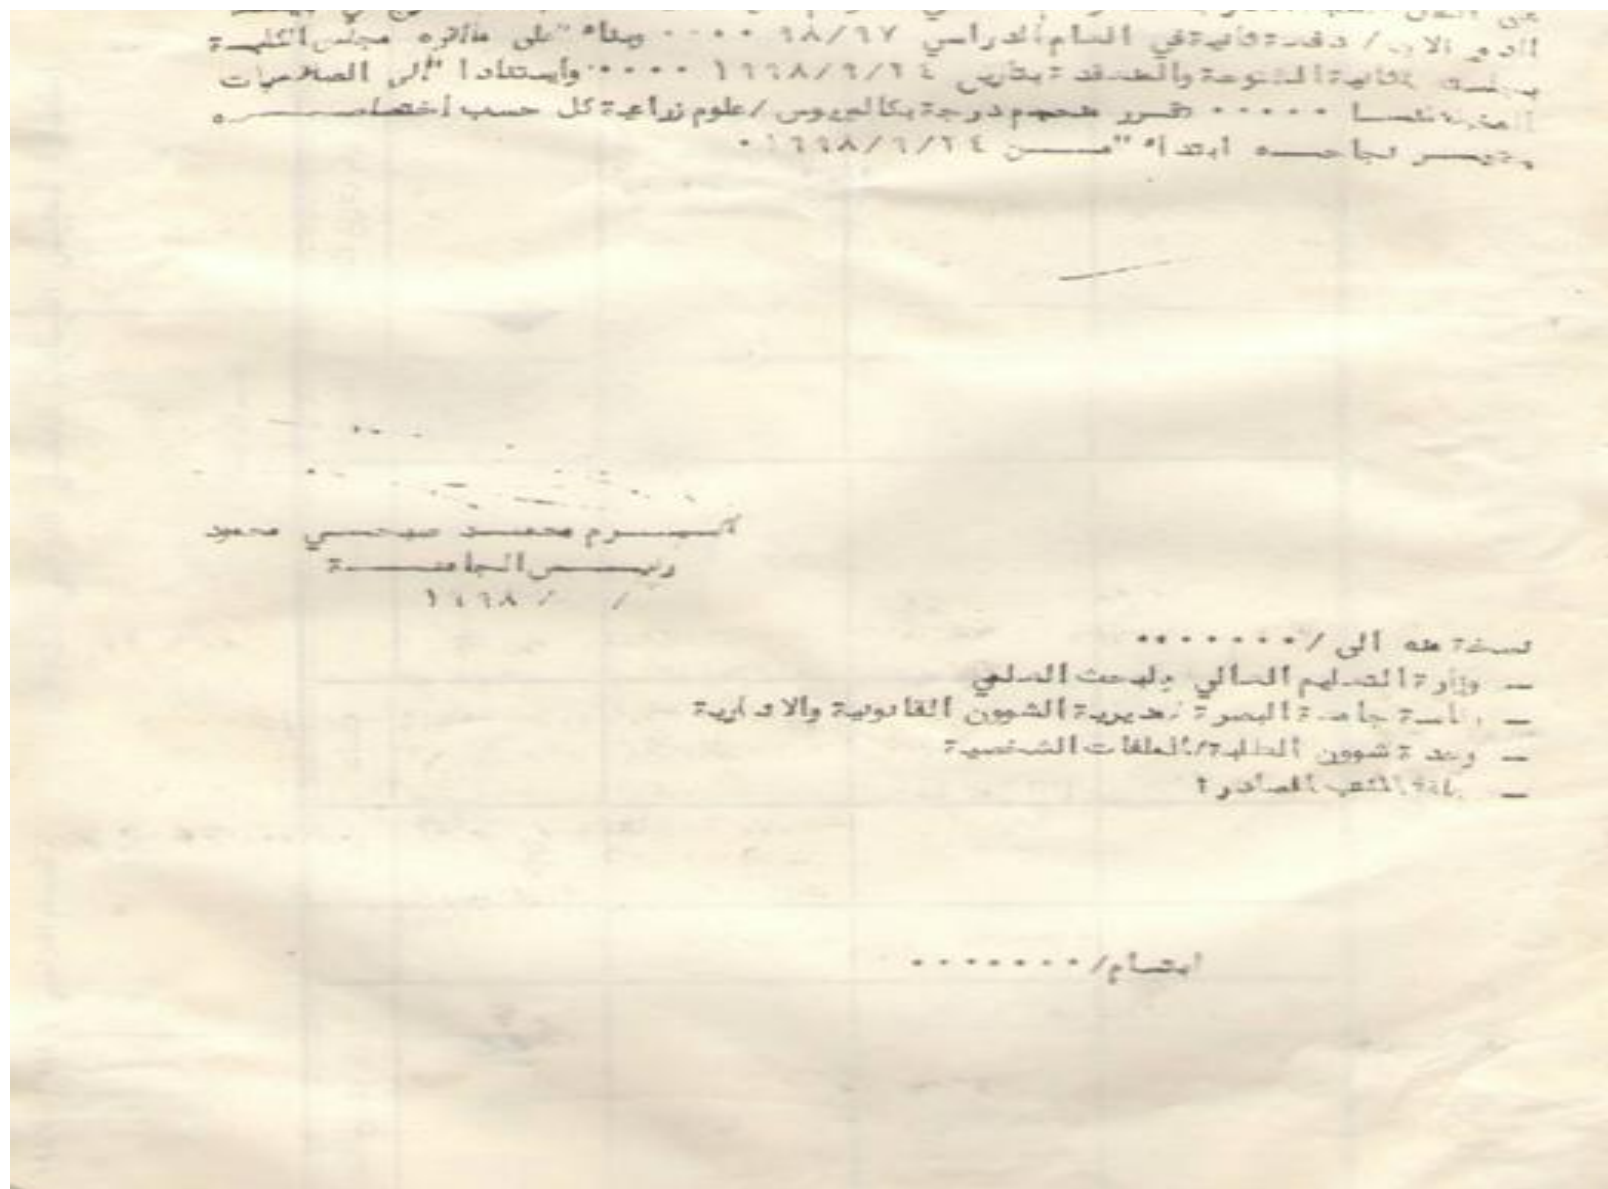 الدور الاول / دفعة ثانية في العام الدراسي ٦٨/٦٧ ٠٠٠٠ وبناء" على ماأقره مجلس الكلية
بجلسته الثانية المفتوحة والمنعقدة بتاريخ ٠٠٠٠ واستنادا" إلى الصلاحيات
المخولة لنا ٠٠٠٠٠ تقرر منحهم درجة بكالوريوس /علوم زراعية كل حسب اختصاصه
ويعتبر نجاحه ابتداء" من
أكرم محمد صبحي محمود
رئيس الجامعة
/ /
نسخة منه الى /٠٠٠٠٠٠٠
— وزارة التعليم العالي والبحث العلمي
— رئاسة جامعة البصرة /مديرية الشوون القانونية والادارية
— وحدة شوون الطلبة/الملفات الشخصية
— الكتب الصادرة
ابتسام/٠٠٠٠٠٠٠